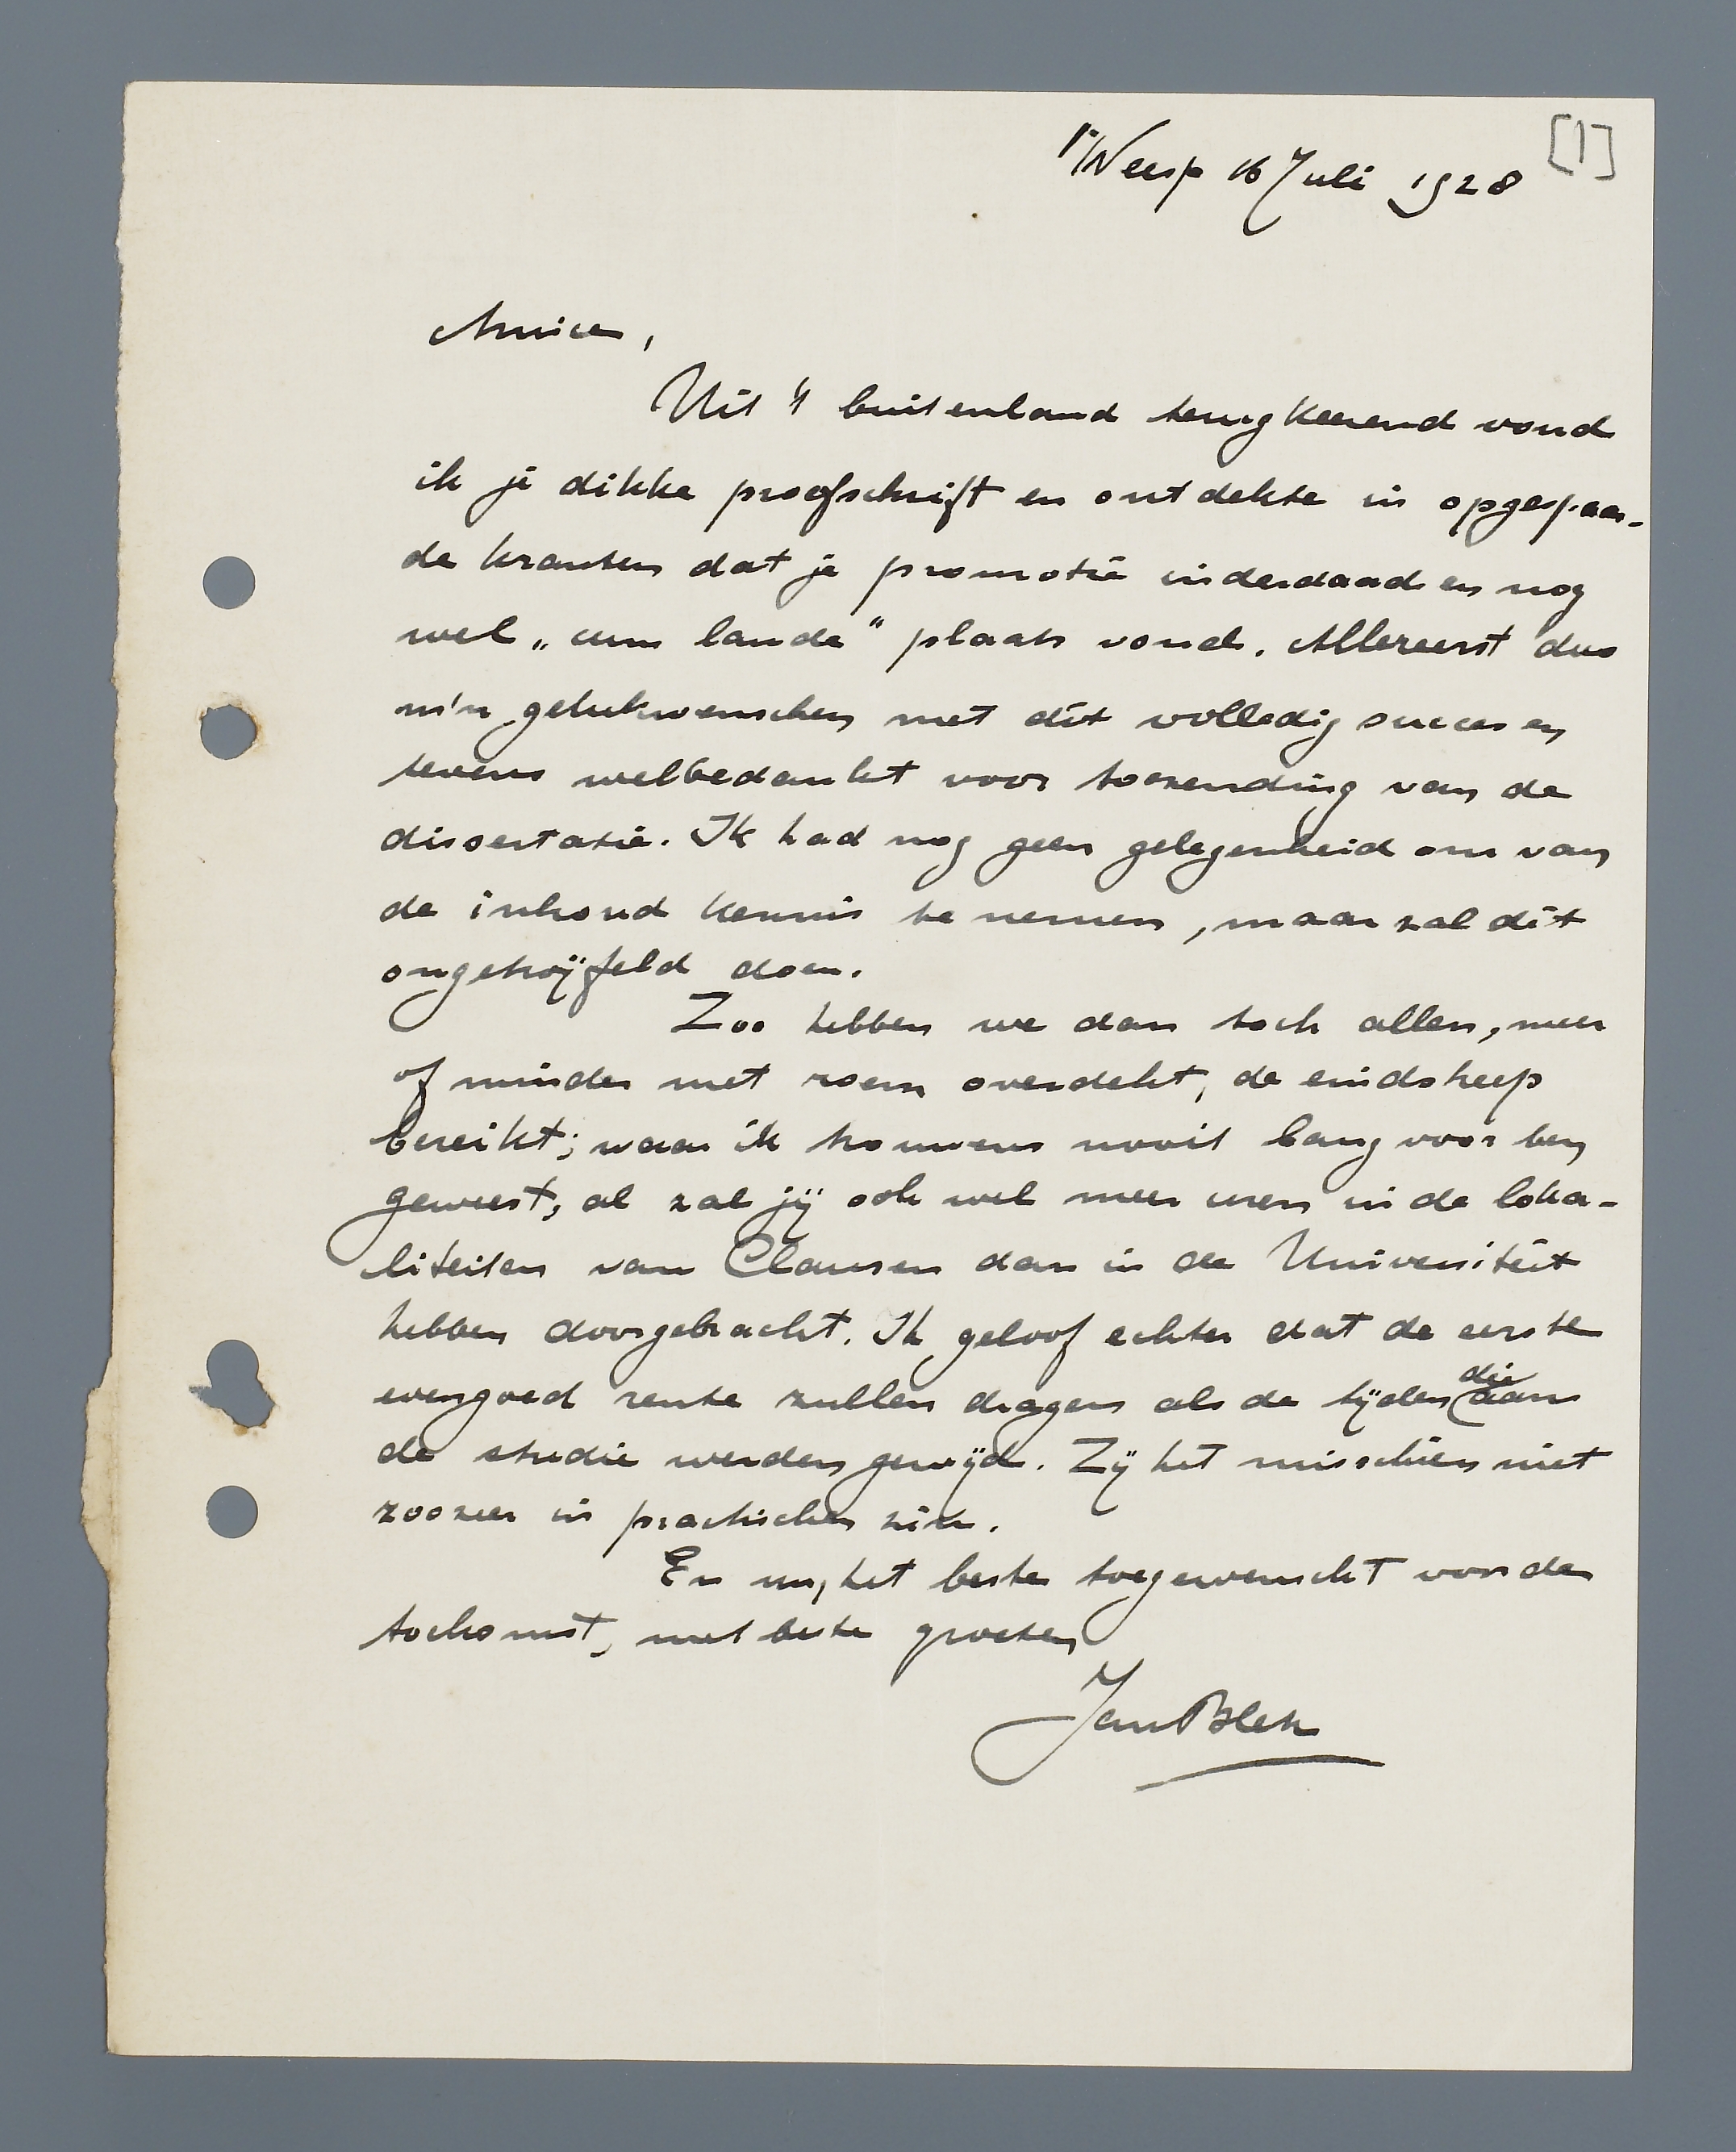 Weesp 16 Juli 1928 [1]
Amice,
Uit 't buitenland terugkeerend vond
ik je dikke proefschrift en ontdekte in opgespaar-
de kranten dat je promotie inderdaad en nog
wel „cum laude" plaats vond. Allereerst dus
m'n gelukwenschen met dit volledig succes en
tevens welbedankt voor toezending van de
dissertatie. Ik had nog geen gelegenheid om van
de inhoud kennis te nemen, maar zal dit
ongetwijfeld doen.
Zoo hebben we dan toch allen, meer
of minder met roem overdekt, de eindstreep
bereikt; waar ik trouwens nooit bang voor ben
geweest, al zal jij ook wel meer uren in de loka-
liteiten van Clausen dan in de Universiteit
hebben doorgebracht. Ik geloof echter dat de eerste
evengoed rente zullen dragen als de tijden die aan
de studie werden gewijd. Zij het misschien niet
zoozeer in practischen zin.
En nu, het beste toegewenscht voor de
toekomst, met beste groeten
Jan Blek